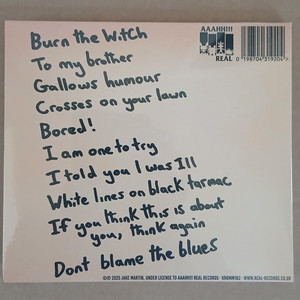 Burn the Witch
To my brother
Gallows humour
Crosses on your lawn
Bored!
I am one to try
I told you I was Ill
White lines on black tarmac
If you think this is about
you, think again
Dont blame the blues
AAAHH!!!
REAL
0 198704 319204
©℗ 2025 JAKE MARTIN, UNDER LICENSE TO AAAHH!!! REAL RECORDS
WWW.REAL-RECORDS.CO.UK